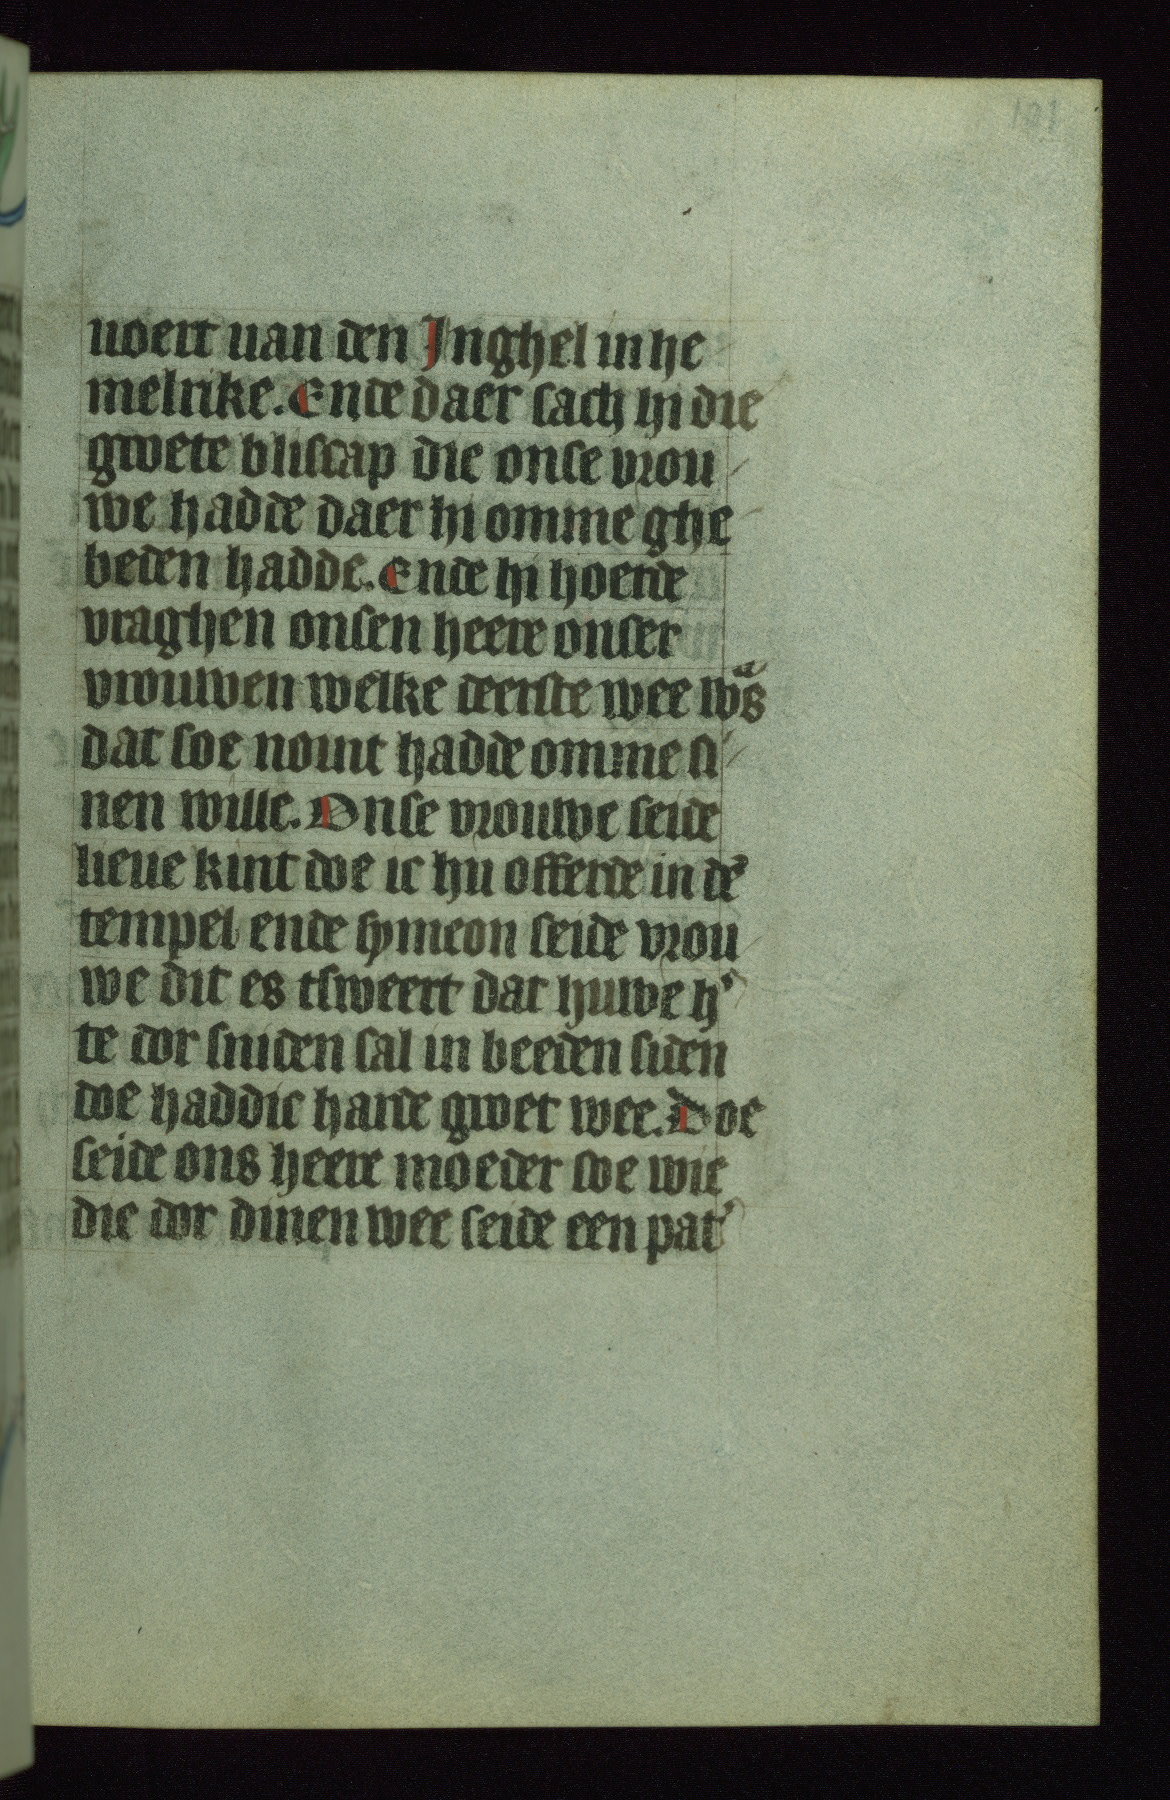 101
uoert uan den Inghel in he
melrike. Ende daer sach hi die
grote bliscap die onse vrou
we hadde daer hi omme ghe
beden hadde. Ende hi hoerde
vraghen onsen heere onser
vrouwen welke deerste wee wͣs
dat soe noint hadde omme si
nen wille. Onse vrouwe seide
lieue kint doe ic hu offerde in dē
tempel ende symeon seide vrou
we dit es tsweert dat huwe h'
te dor sniden sal in beeden siden
doe haddic harde groet wee. Doe
seide ons heere moeder soe wie
die dor dinen wee seide een pat'